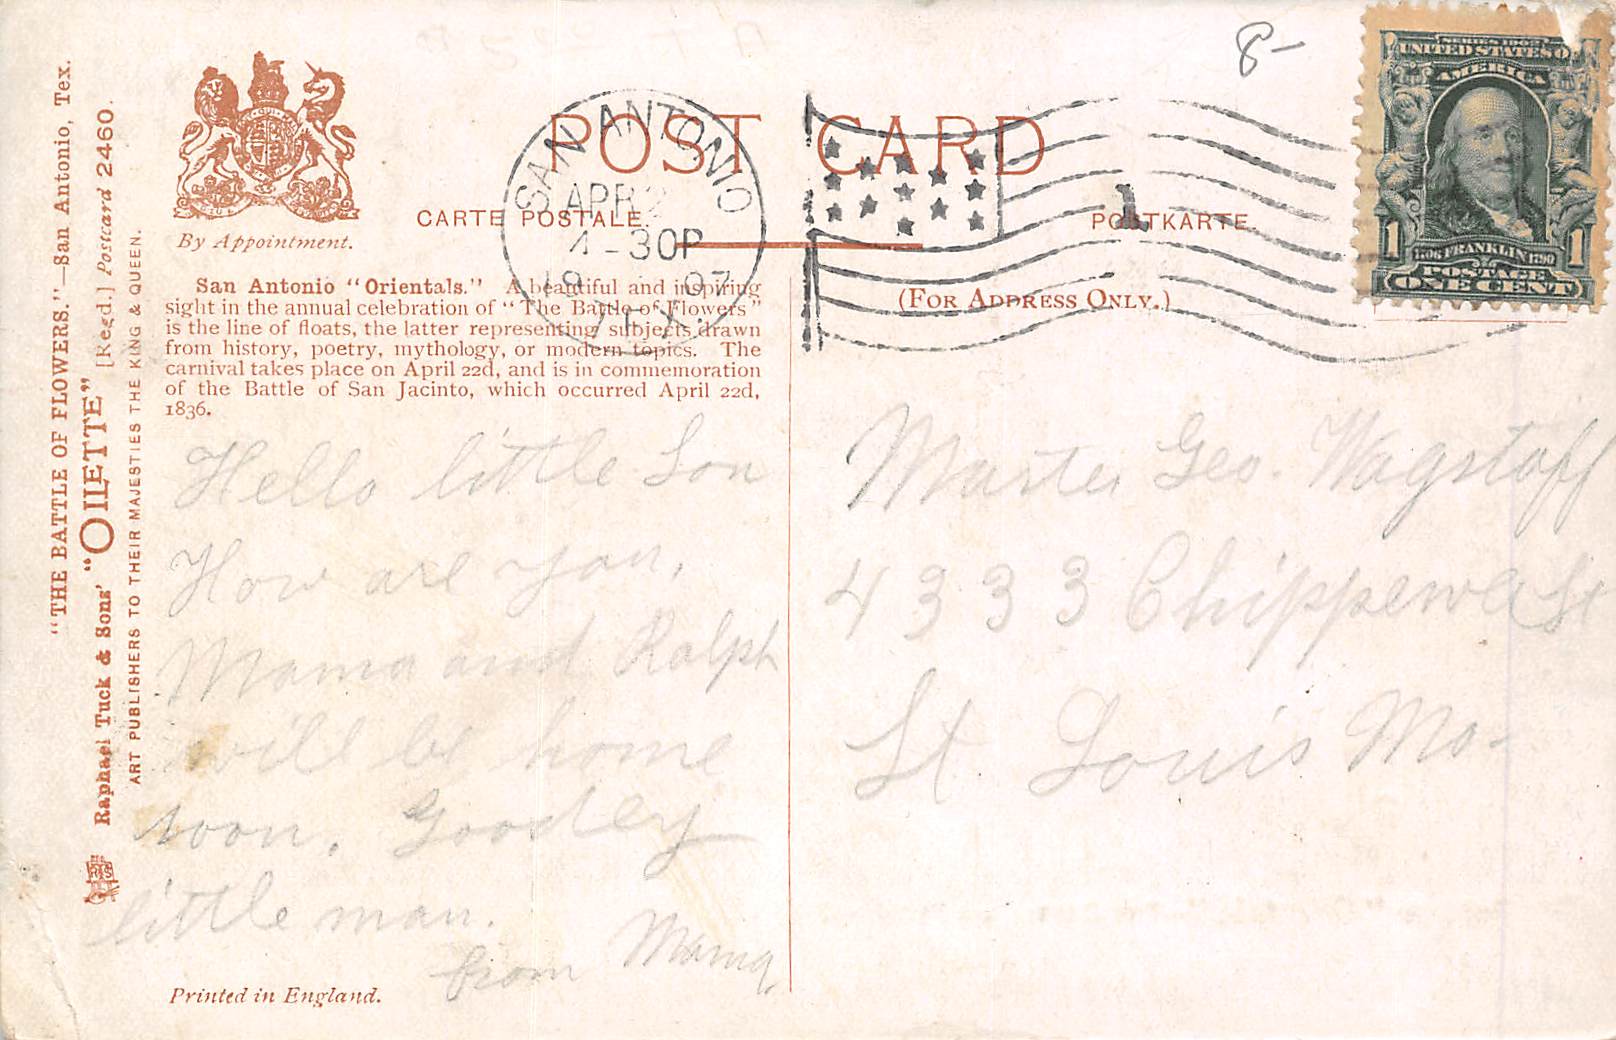 8-
SERIES 1902
UNITED STATES OF
AMERICA
1706 FRANKLIN 1790
POSTAGE
1 1
ONE CENT
POST CARD
SAN ANTONIO
APR 2
4-30P
07
TEX.
1
CARTE POSTALE.
POSTKARTE
(FOR ADDRESS ONLY.)
By Appointment.
"THE BATTLE OF FLOWERS."—San Antonio, Tex.
Raphael Tuck & Sons' "OILETTE" [Regd.] Postcard 2460.
ART PUBLISHERS TO THEIR MAJESTIES THE KING & QUEEN.
San Antonio "Orientals." A beautiful and inspiring
sight in the annual celebration of "The Battle of Flowers"
is the line of floats, the latter representing subjects drawn
from history, poetry, mythology, or modern topics. The
carnival takes place on April 22d, and is in commemoration
of the Battle of San Jacinto, which occurred April 22d,
1836.
Hello little Son
How are you,
Mama and Ralph
will be home
soon. Goodby
little man.
from Mama,
Master Geo. Wagstaff
4333 Chippewa St
St Louis Mo-
Printed in England.